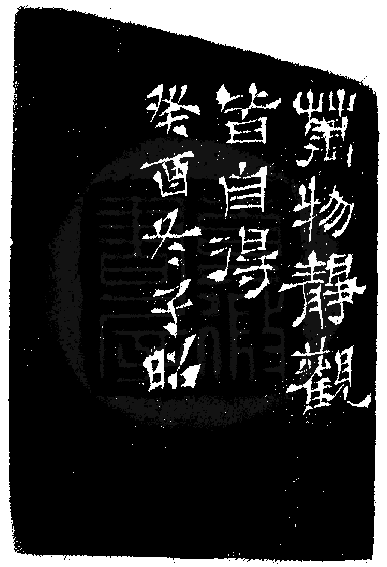 萬物靜觀
皆自得
癸酉冬子昭